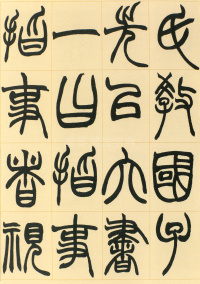 氏教國子
先以六書
一曰指事
指事者視